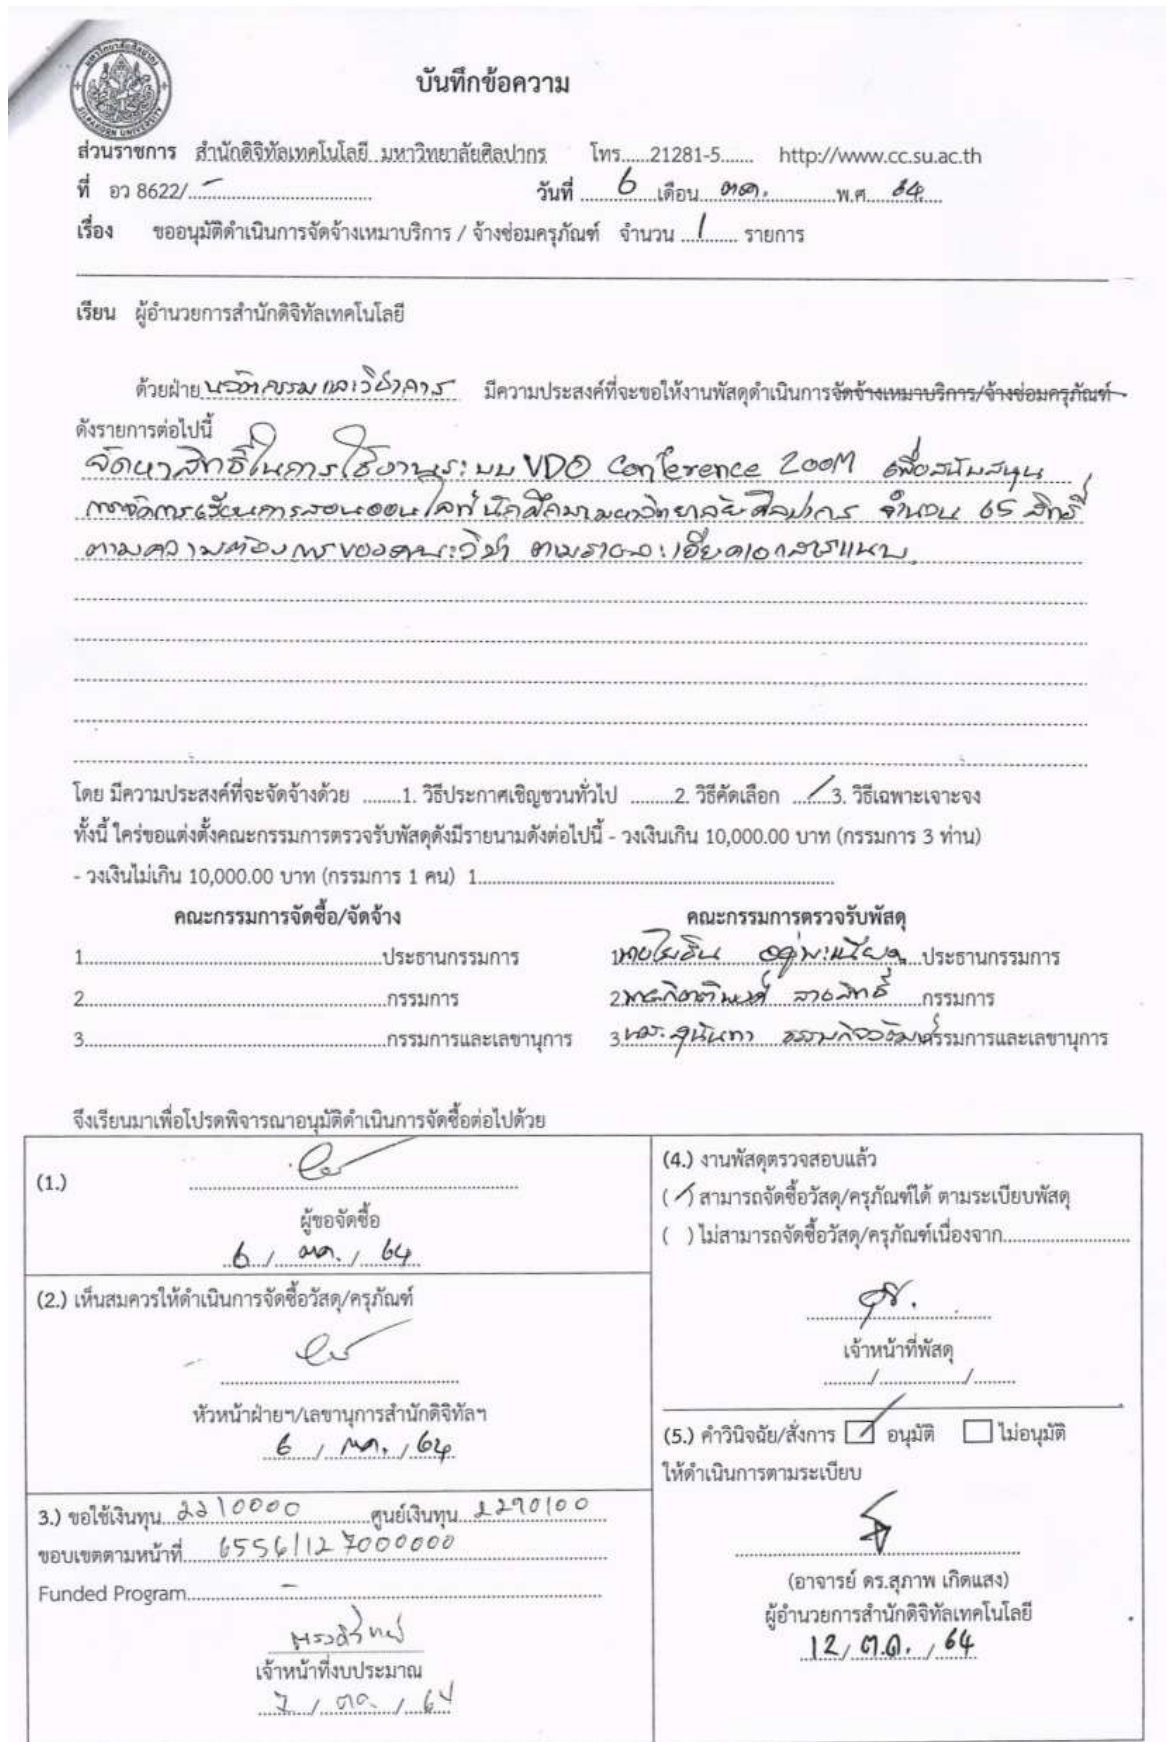 บันทึกข้อความ
ส่วนราชการ สำนักดิจิทัลเทคโนโลยี มหาวิทยาลัยศิลปากร โทร......21281-5....... http://www.cc.su.ac.th
ที่ อว 8622/- วันที่ 6 เดือน ตค. พ.ศ. 64
เรื่อง ขออนุมัติดำเนินการจัดจ้างเหมาบริการ / จ้างซ่อมครุภัณฑ์ จำนวน 1 รายการ
เรียน ผู้อำนวยการสำนักดิจิทัลเทคโนโลยี
ด้วยฝ่าย นวัตกรรมและวิชาการ มีความประสงค์ที่จะขอให้งานพัสดุดำเนินการจัดจ้างเหมาบริการ/จ้างซ่อมครุภัณฑ์
ดังรายการต่อไปนี้
จัดหาสิทธิ์ในการใช้งานระบบ VDO Conference ZOOM เพื่อสนับสนุน
การจัดการเรียนการสอนออนไลน์ นักศึกษามหาวิทยาลัยศิลปากร จำนวน 65 สิทธิ์
ตามความต้องการของคณะวิชา ตามรายละเอียดเอกสารแนบ
โดย มีความประสงค์ที่จะจัดจ้างด้วย ........1. วิธีประกาศเชิญชวนทั่วไป .........2. วิธีคัดเลือก ...../...3. วิธีเฉพาะเจาะจง
ทั้งนี้ ใคร่ขอแต่งตั้งคณะกรรมการตรวจรับพัสดุดังมีรายนามดังต่อไปนี้ - วงเงินเกิน 10,000.00 บาท (กรรมการ 3 ท่าน)
- วงเงินไม่เกิน 10,000.00 บาท (กรรมการ 1 คน) 1.
คณะกรรมการจัดซื้อ/จัดจ้าง คณะกรรมการตรวจรับพัสดุ
1. ประธานกรรมการ 1. ประธานกรรมการ
2. กรรมการ 2. กิตติพงศ์ กรรมการ
3. กรรมการและเลขานุการ 3. สุนันทา กรรมการและเลขานุการ
จึงเรียนมาเพื่อโปรดพิจารณาอนุมัติดำเนินการจัดซื้อต่อไปด้วย
(1.)
ผู้ขอจัดซื้อ
6 / ตค. / 64
(2.) เห็นสมควรให้ดำเนินการจัดซื้อวัสดุ/ครุภัณฑ์
หัวหน้าฝ่ายฯ/เลขานุการสำนักดิจิทัลฯ
6 / ตค. / 64
3.) ขอใช้เงินทุน 2210000 ศูนย์เงินทุน 2290100
ขอบเขตตามหน้าที่ 6556112 7000000
Funded Program -
เจ้าหน้าที่งบประมาณ
7 / ตค. / 64
(4.) งานพัสดุตรวจสอบแล้ว
( / ) สามารถจัดซื้อวัสดุ/ครุภัณฑ์ได้ ตามระเบียบพัสดุ
( ) ไม่สามารถจัดซื้อวัสดุ/ครุภัณฑ์เนื่องจาก
เจ้าหน้าที่พัสดุ
......./................/........
(5.) คำวินิจฉัย/สั่งการ อนุมัติ ไม่อนุมัติ
ให้ดำเนินการตามระเบียบ
(อาจารย์ ดร.สุภาพ เกิดแสง)
ผู้อำนวยการสำนักดิจิทัลเทคโนโลยี
12 / ต.ค. / 64